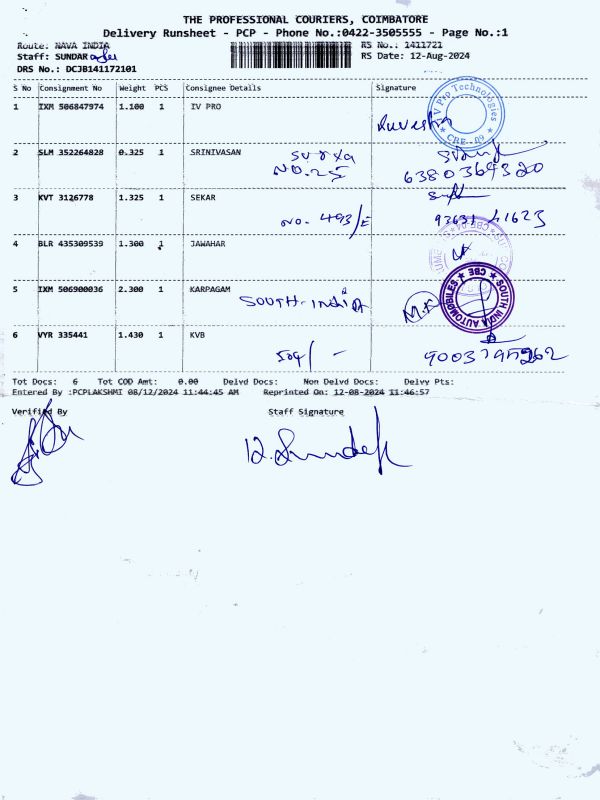 THE PROFESSIONAL COURIERS, COIMBATORE
Delivery Runsheet - PCP - Phone No.:0422-3505555 - Page No.:1
Route: NAVA INDIA RS No.: 1411721
Staff: SUNDAR RS Date: 12-Aug-2024
DRS No.: DCJB141172101
S No Consignment No Weight PCS Consignee Details Signature
1 IXM 506847974 1.100 1 IV PRO
V Pro Technologies
CBE - 09
2 SLM 352264828 0.325 1 SRINIVASAN Surya
NO. 25 6380364320
3 KVT 3126778 1.325 1 SEKAR
NO. 493/E 93631 41623
4 BLR 435309539 1.300 1 JAWAHAR
5 IXM 506900036 2.300 1 KARPAGAM
SOUTH-India M.K
SOUTH INDIA AUTOMOBILES ★ CBE ★
6 VYR 335441 1.430 1 KVB
509/ -
Tot Docs: 6 Tot COD Amt: 0.00 Delvd Docs: Non Delvd Docs: Delvy Pts:
Entered By :PCPLAKSHMI 08/12/2024 11:44:45 AM Reprinted On: 12-08-2024 11:46:57
Verified By Staff Signature